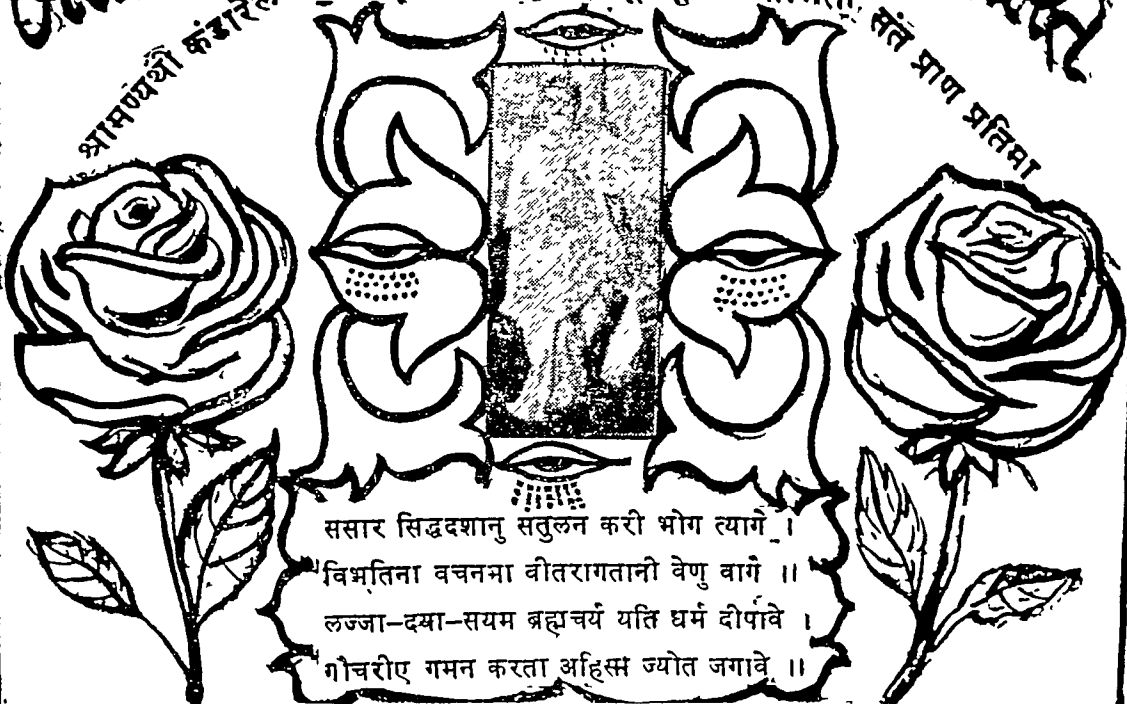 श्रामण्यथी कंडारेल
संत प्राण प्रतिमा
ससार सिद्धदशानु सतुलन करी भोग त्यागे ।
विभतिना वचनमा वीतरागतानी वेणु वागे ॥
लज्जा-दया-सयम ब्रह्मचर्य यति धर्म दीपावे ।
गौचरीए गमन करता अहिंसा ज्योत जगावे ॥